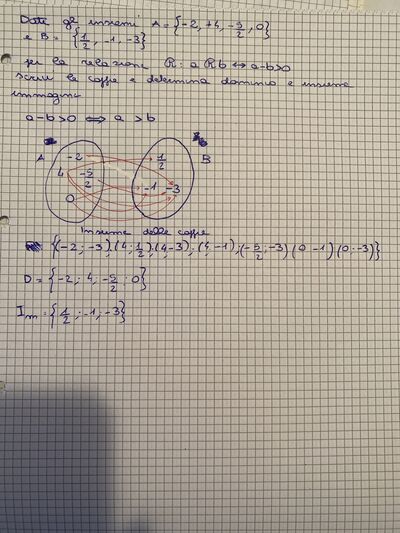 Date gli insiemi A = {-2, +4, -5/2, 0}
e B = {1/2, -1, -3}
per la relazione R: a R b ↔ a-b>0
scrivi le coppie e determina dominio e insieme
immagine
a-b>0 ⟺ a > b
A -2 1/2 B
4 -5/2 -1 -3
0
Insieme delle coppie
{(-2; -3),(4; 1/2),(4-3);(4,-1);(-5/2;-3)(0-1)(0;-3)}
D = {-2; 4, -5/2; 0}
Im = {1/2; -1; -3}